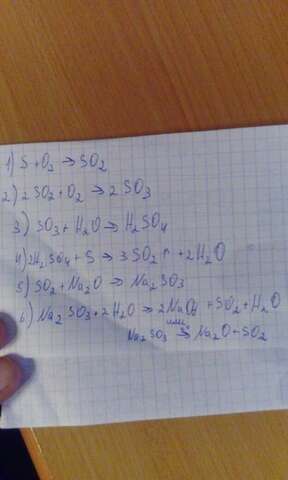 1) S + O2 → SO2
2) 2SO2 + O2 → 2SO3
3) SO3 + H2O → H2SO4
4) 2H2SO4 + S → 3SO2 ↑ + 2H2O
5) SO2 + Na2O → Na2SO3
6) Na2SO3 + 2H2O → 2NaOH + SO2 + H2O
или
Na2SO3 → Na2O + SO2